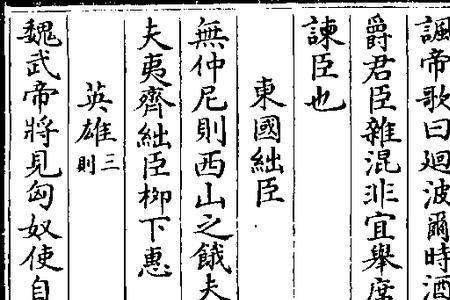 諷帝歌曰廻波爾時酒
爵君臣雜混非宜舉度
諫臣也
東國絀臣
無仲尼則西山之餓夫
夫夷齊絀臣柳下惠
英雄三則
魏武帝將見匈奴使自